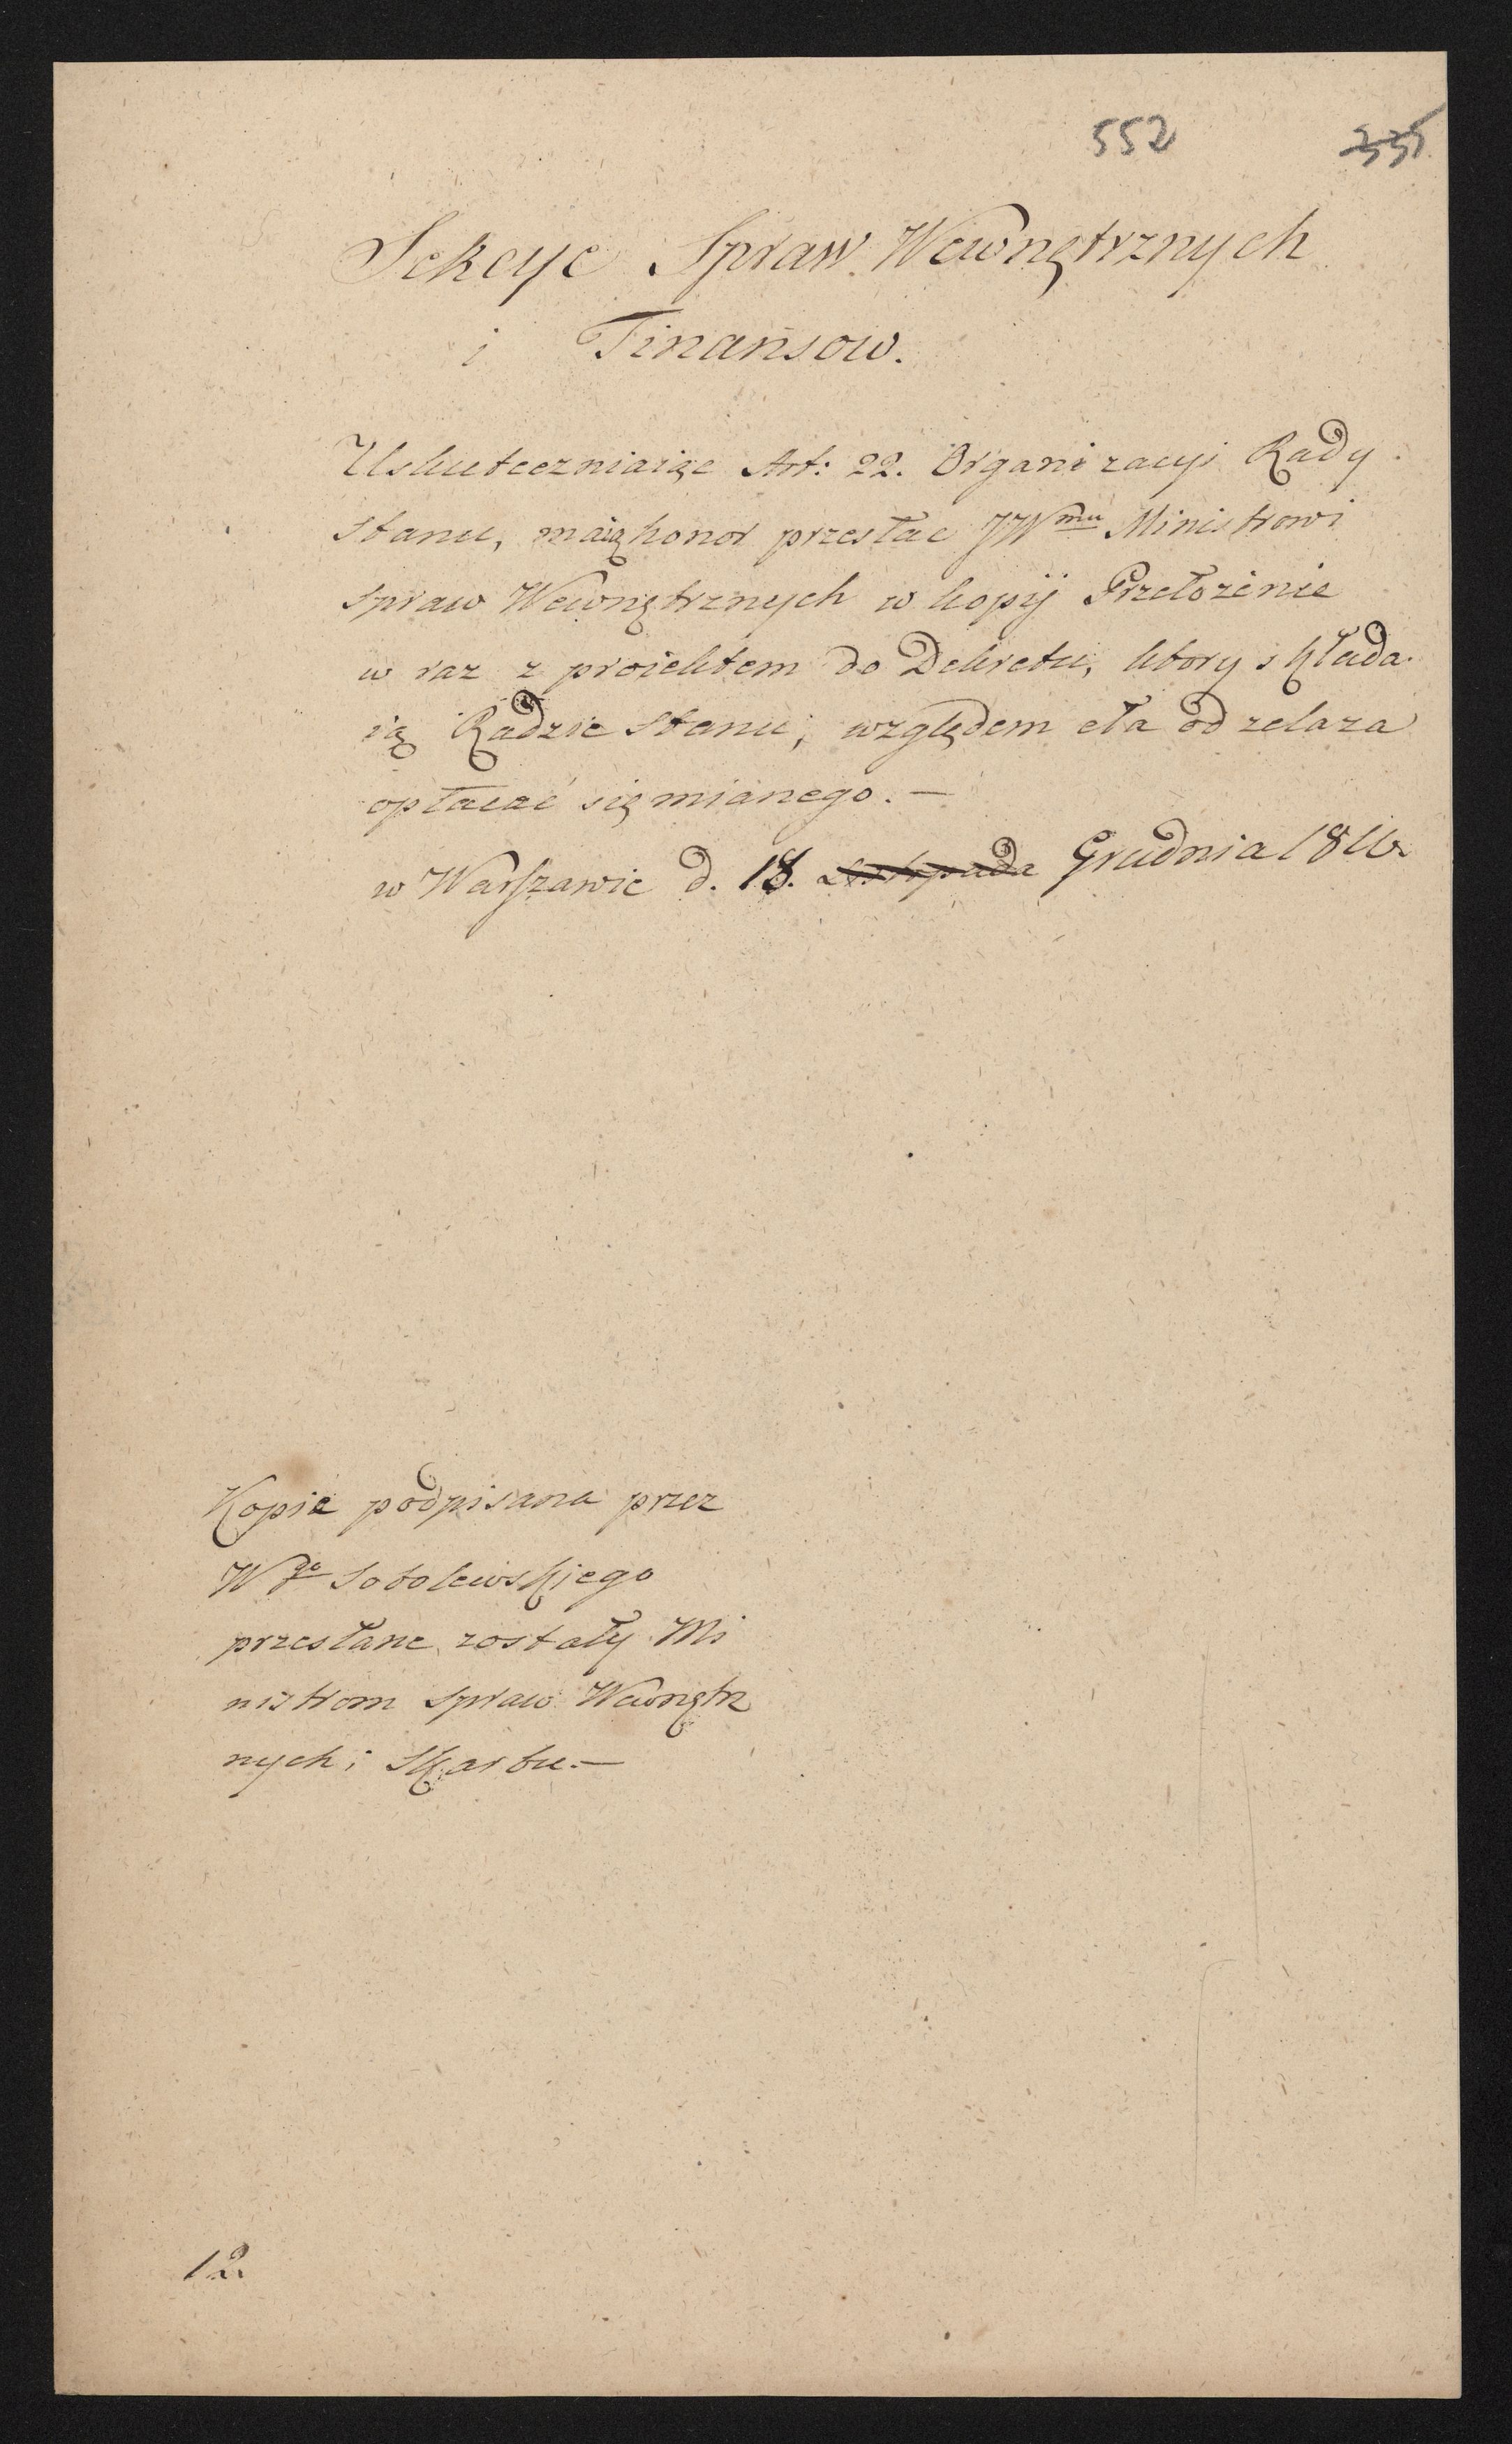 552 335
Sekcye Spraw Wewnętrznych
i Finansow.
Uskuteczniaiąc Art: 22. Organizacyi Rady
Stanu, maią honor przesłac JWmu Ministrowi
Spraw Wewnętrznych w kopij Przełożenie
w raz z proiektem do Dekretu, ktory składa
ią Radzie Stanu, względem cła od zelaza
opłacać się mianego. —
w Warszawie d. 18. Listopada Grudnia 1811r.
Kopie podpisane przez
Wgo Sobolewskiego
przesłane zostały Mi
nistrom Spraw Wewnętrz
nych i Skarbu. —
12.